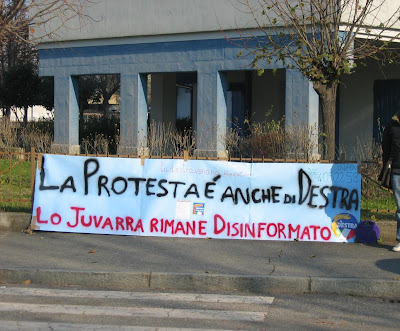 LA PROTESTA E' ANCHE DI DESTRA
LO JUVARRA RIMANE DISINFORMATO
DESTRA